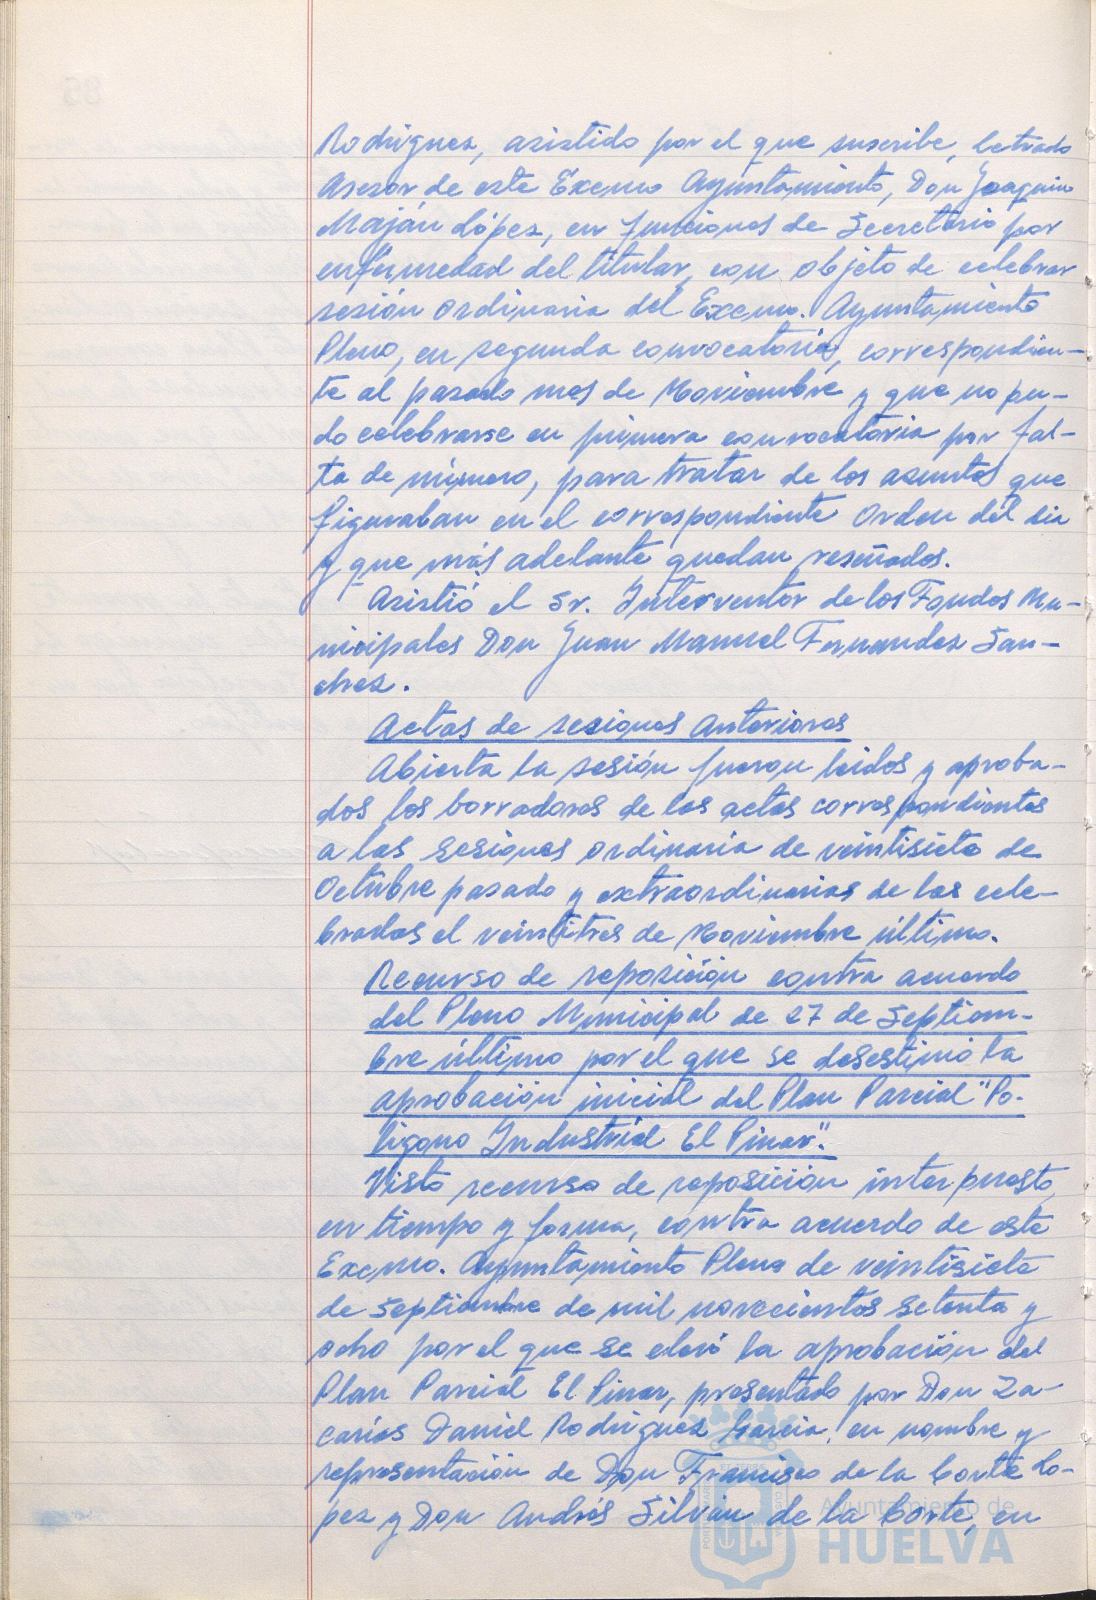 Rodriguez, asistido por el que suscribe, letrado
Asesor de este Excmo Ayuntamiento, Don Joaquin
Maján López, en funciones de Secretario por
enfermedad del titular, con objeto de celebrar
sesión ordinaria del Excmo. Ayuntamiento
Pleno, en segunda convocatoria, correspondien-
te al pasado mes de Noviembre y que no pu-
do celebrarse en primera convocatoria por fal-
ta de número, para tratar de los asuntos que
figuraban en el correspondiente Orden del dia
y que más adelante quedan reseñados.
Asistió el Sr. Interventor de los Fondos Mu-
nicipales Don Juan Manuel Fernandez San-
chez.
Actas de sesiones Anteriores
Abierta la sesión fueron leidos y aproba-
dos los borradores de las actas correspondientes
a las sesiones ordinaria de veintisiete de
Octubre pasado y extraordinarias de las cele-
bradas el veintitres de Noviembre último.
Recurso de reposición contra acuerdo
del Pleno Municipal de 27 de Septiem-
bre último por el que se desestimó la
aprobación inicial del Plan Parcial "Po-
ligono Industrial El Pinar".
Visto recurso de reposición interpuesto,
en tiempo y forma, contra acuerdo de este
Excmo. Ayuntamiento Pleno de veintisiete
de Septiembre de mil novecientos setenta y
ocho por el que se la aprobación del
Plan Parcial El Pinar, presentado por Don Za-
carias Daniel Rodriguez Garcia, en nombre y
representación de Don Francisco de la Corte Lo-
pez y Don Andrés Silván de la Corte, en
Ayuntamiento de
HUELVA